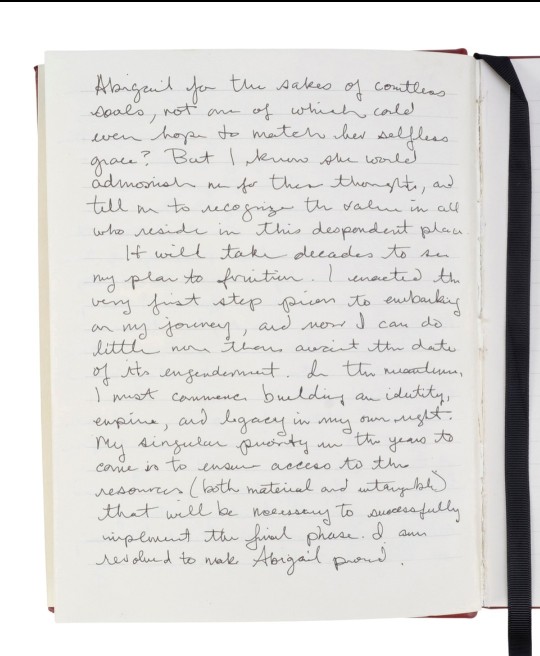 Abigail for the sakes of countless
souls, not one of which could
even hope to match her selfless
grace? But I know she would
admonish me for these thoughts, and
tell me to recognize the value in all
who reside in this despondent place
It will take decades to see
my plan to fruition. I enacted the
very first step prior to embarking
on my journey, and now I can do
little more than await the date
of its engenderment. In the meantime,
I must commence building an identity,
empire, and legacy in my own right.
My singular priority in the years to
come is to ensure access to the
resources (both material and intangible)
that will be necessary to successfully
implement the final phase. I am
resolved to make Abigail proud.